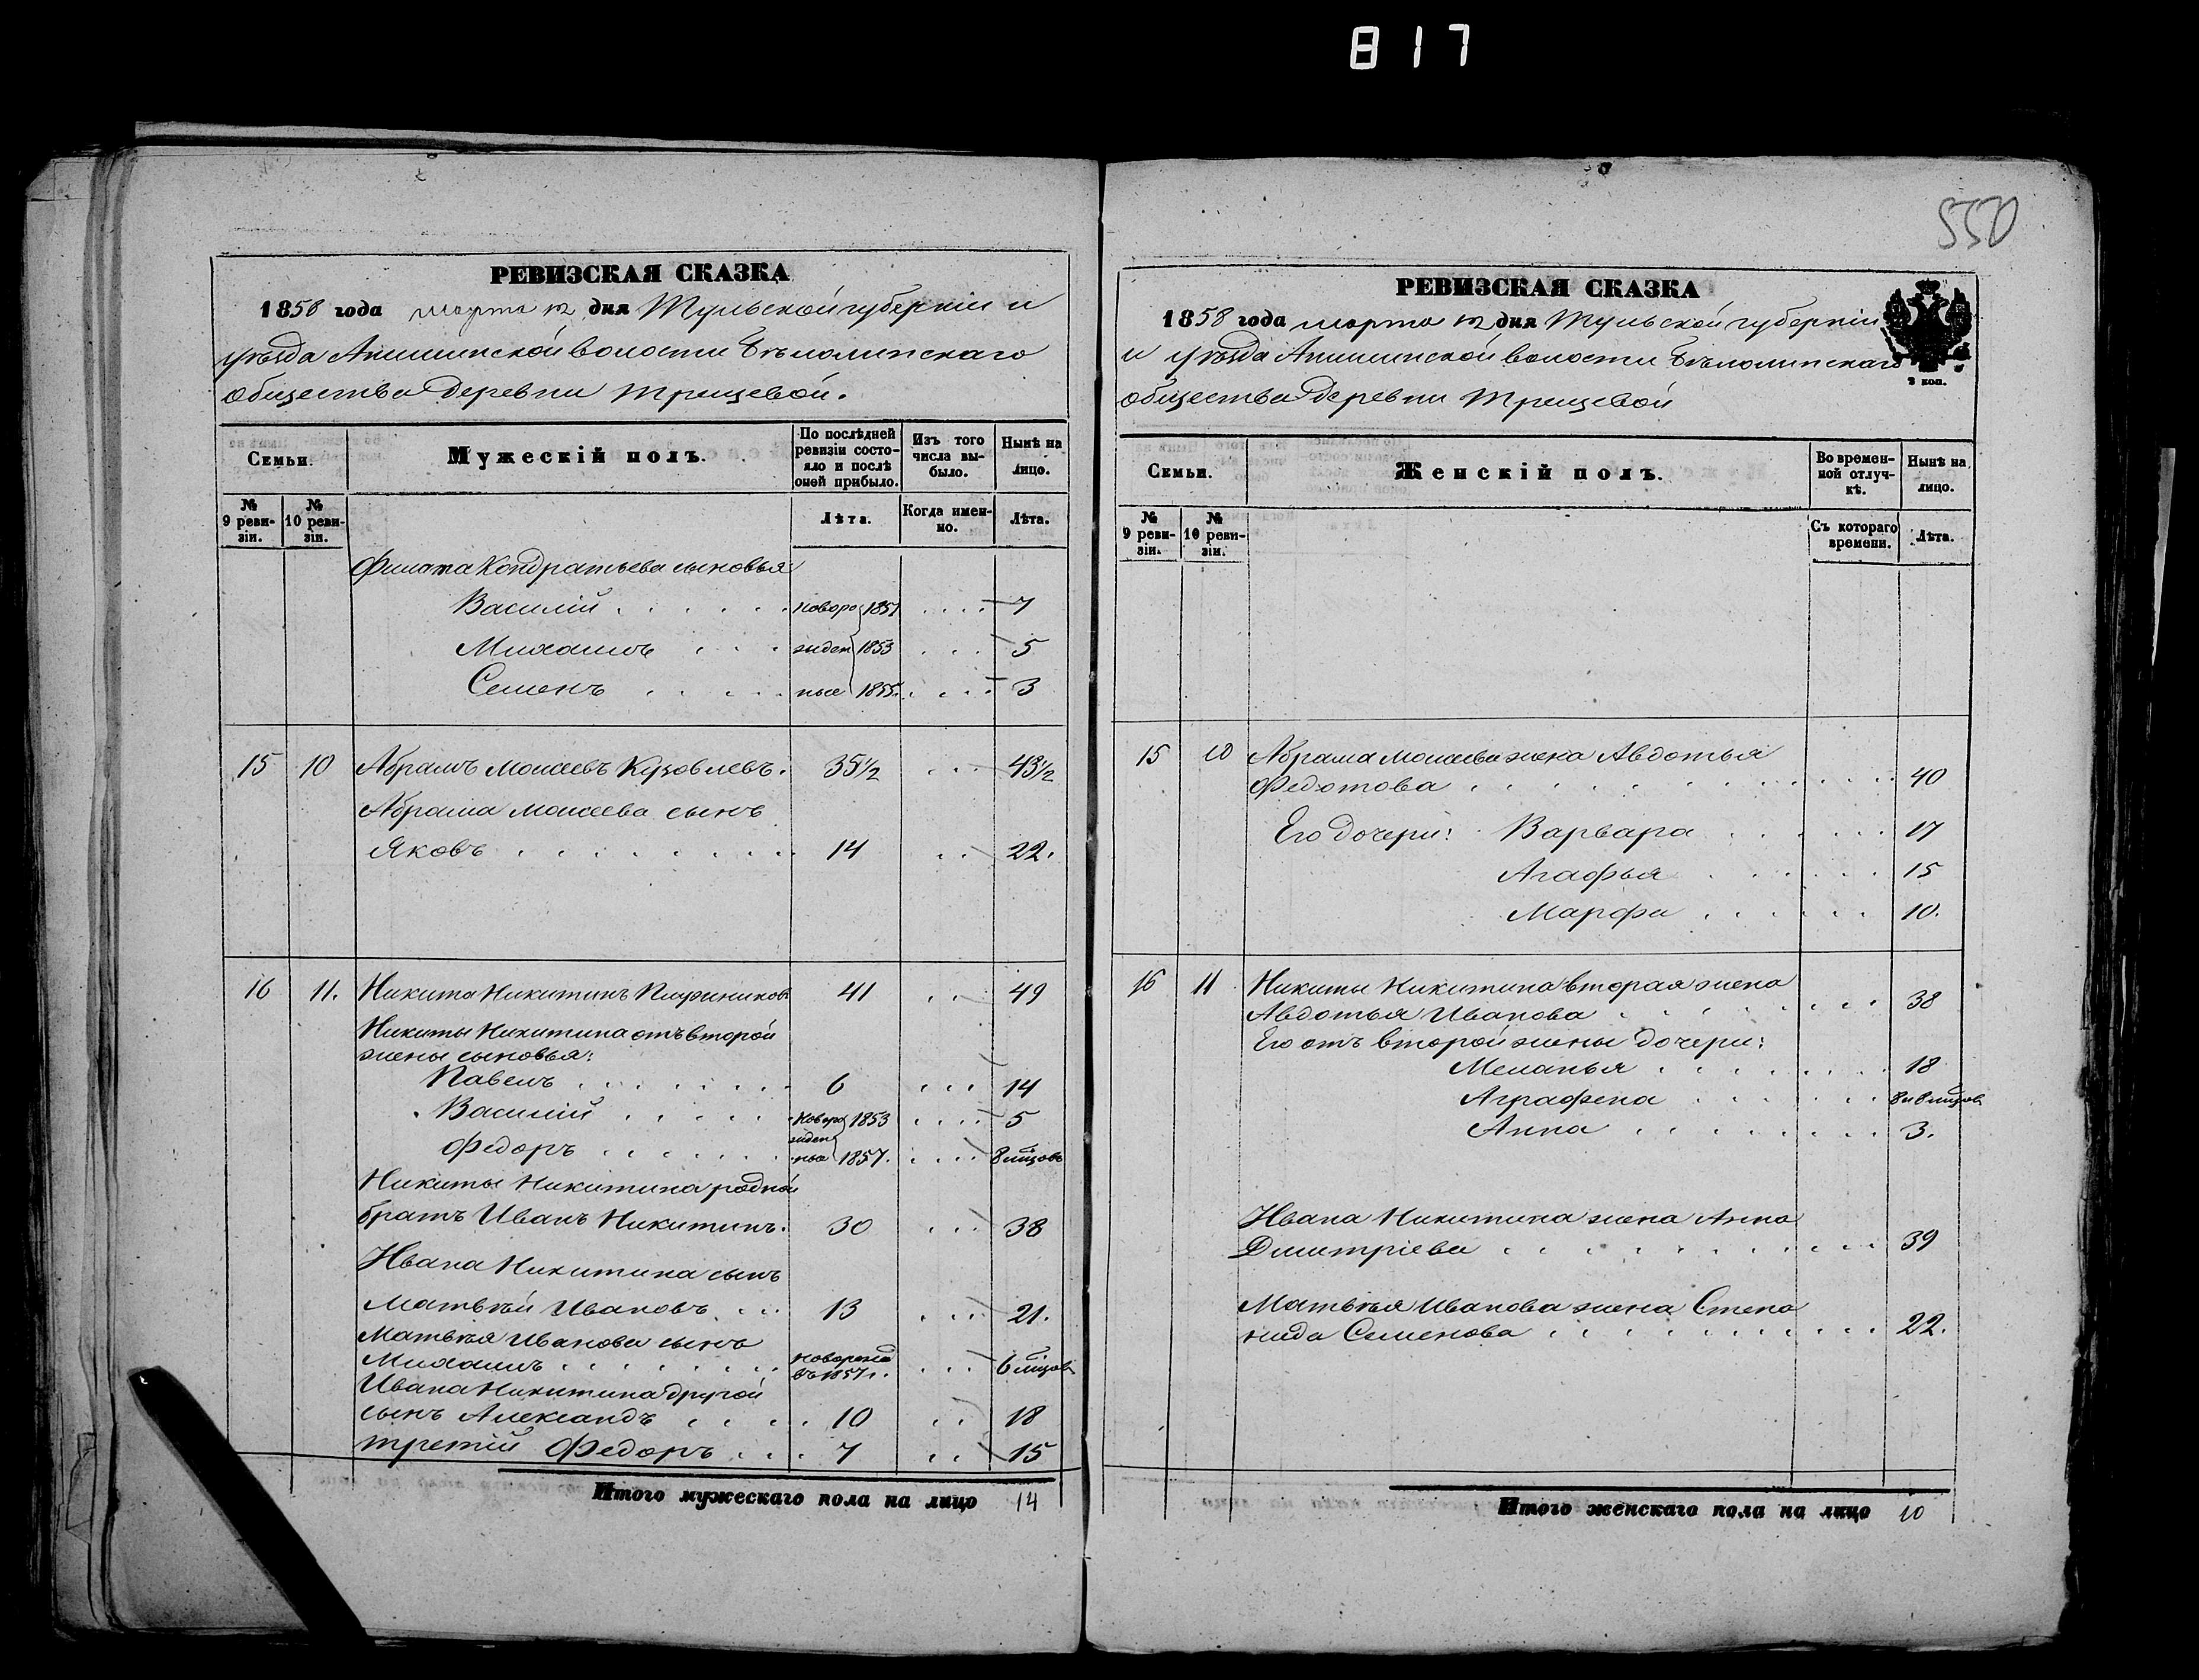 817
550
РЕВИЗСКАЯ СКАЗКА
1858 года марта 12 дня Тульской губерніи и
уѣзда Анишинской волости Бѣлолипскаго
общества деревни Трещевой.
Семьи.
Мужескій полъ.
По послѣдней ревизіи состояло и послѣ оной прибыло.
Изъ того числа выбыло.
Нынѣ на лицо.
№ 9 ревизіи.
№ 10 ревизіи.
Лѣта.
Когда именно.
Лѣта.
Филата Кондратьева сыновья
Василій новоро 1851 7
Михаилъ жден 1853 5
Семенъ ные 1855. 3
15 10 Абрамъ Моисеевъ Кузовлевъ. 35½ 43½
Абрама Моисеева сынъ
Яковъ 14 22.
16 11. Никита Никитинъ 41 49
Никиты Никитина отъ второй
жены сыновья:
Павелъ 6 14
Василій новоро 1853 5
жден
Федоръ ные 1857. 8 мцовъ
Никиты Никитина родной
братъ Иванъ Никитинъ. 30 38
Ивана Никитина сынъ
Матвѣй Ивановъ 13 21.
Матвѣя Иванова сынъ
Михаилъ новорожд въ 1857 г. 6 мцовъ
Ивана Никитина другой
сынъ Александъ 10 18
третій Федоръ 7 15
Итого мужескаго пола на лицо 14
РЕВИЗСКАЯ СКАЗКА
1858 года марта 12 дня Тульской губерніи
и уѣзда Анишинской волости Бѣлолипскаго
общества деревни Трещевой
2 коп.
Семьи.
Женскій полъ.
Во временной отлучкѣ.
Нынѣ на лицо.
№ 9 ревизіи.
№ 10 ревизіи.
Съ котораго времени.
Лѣта.
15 10 Абрама Моисеева жена Авдотья
Федотова 40
Его дочери: Варвара 17
Агафья 15
Марфа 10.
16 11 Никиты Никитина вторая жена
Авдотья Иванова 38
Его отъ второй жены дочери:
Меланья 18
Аграфена 8 и 8 мцовъ
Анна 3.
Ивана Никитина жена Анна
Дмитріева 39
Матвѣя Иванова жена Степа
нида Семенова 22.
Итого женскаго пола на лицо 10